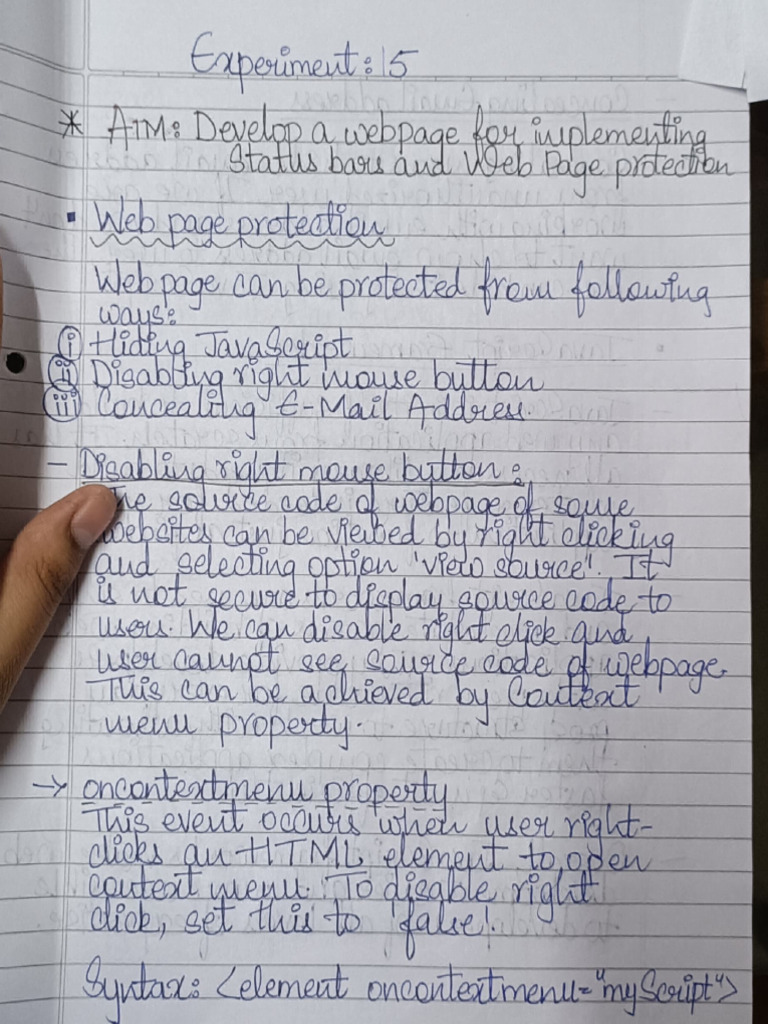 Experiment: 15
* AIM: Develop a webpage for implementing
Status bars and Web Page protection
▪ Web page protection
Web page can be protected from following
ways:
(i) Hiding JavaScript
(ii) Disabling right mouse button
(iii) Concealing E-Mail Address.
- Disabling right mouse button:
The source code of webpage of some
websites can be viewed by right clicking
and selecting option 'view source'. It
is not secure to display source code to
users. We can disable right click and
user cannot see source code of webpage.
This can be achieved by Context
menu property.
→ oncontextmenu property
This event occurs when user right-
clicks an HTML element to open
context menu. To disable right
click, set this to 'false'.
Syntax: <element oncontextmenu="myScript">